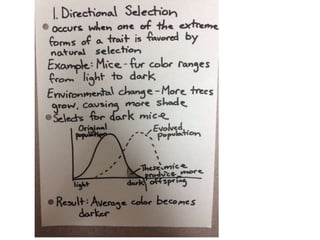 1. Directional Selection
occurs when one of the extreme
forms of a trait is favored by
natural selection
Example: Mice - fur color ranges
from light to dark
Environmental change - More trees
grow, causing more shade
Selects for dark mice
Original
population
Evolved
population
These mice
produce more
offspring
light
dark
Result: Average color becomes
darker